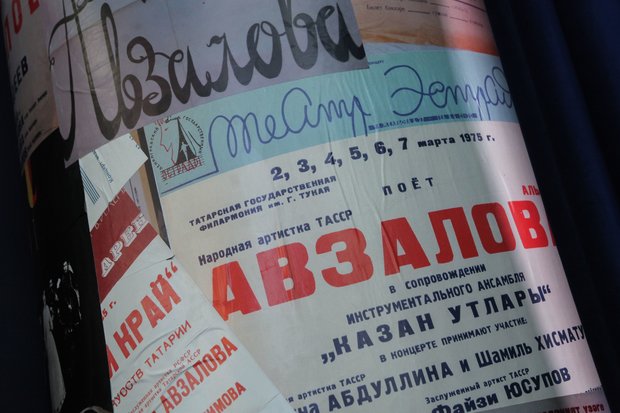 Авзалова
Театр Эстрад
ЭСТРАДЫ
2, 3, 4, 5, 6, 7 марта 1975 г.
ТАТАРСКАЯ ГОСУДАРСТВЕННАЯ
ФИЛАРМОНИЯ ИМ. Г. ТУКАЯ
ПОЁТ
Народная артистка ТАССР
АЛЬ
АВЗАЛОВ
В СОПРОВОЖДЕНИИ
ИНСТРУМЕНТАЛЬНОГО АНСАМБЛЯ
„КАЗАН УТЛАРЫ"
В КОНЦЕРТЕ ПРИНИМАЮТ УЧАСТИЕ:
артистка ТАССР
на АБДУЛЛИНА и Шамиль ХИСМАТУ
Заслуженный артист ТАССР
Файзи ЮСУПОВ
АРЕН
Й КРАЙ"
УССТВ ТАТАРИИ
АВЗАЛОВА
ИМОВА
ЕЕВ